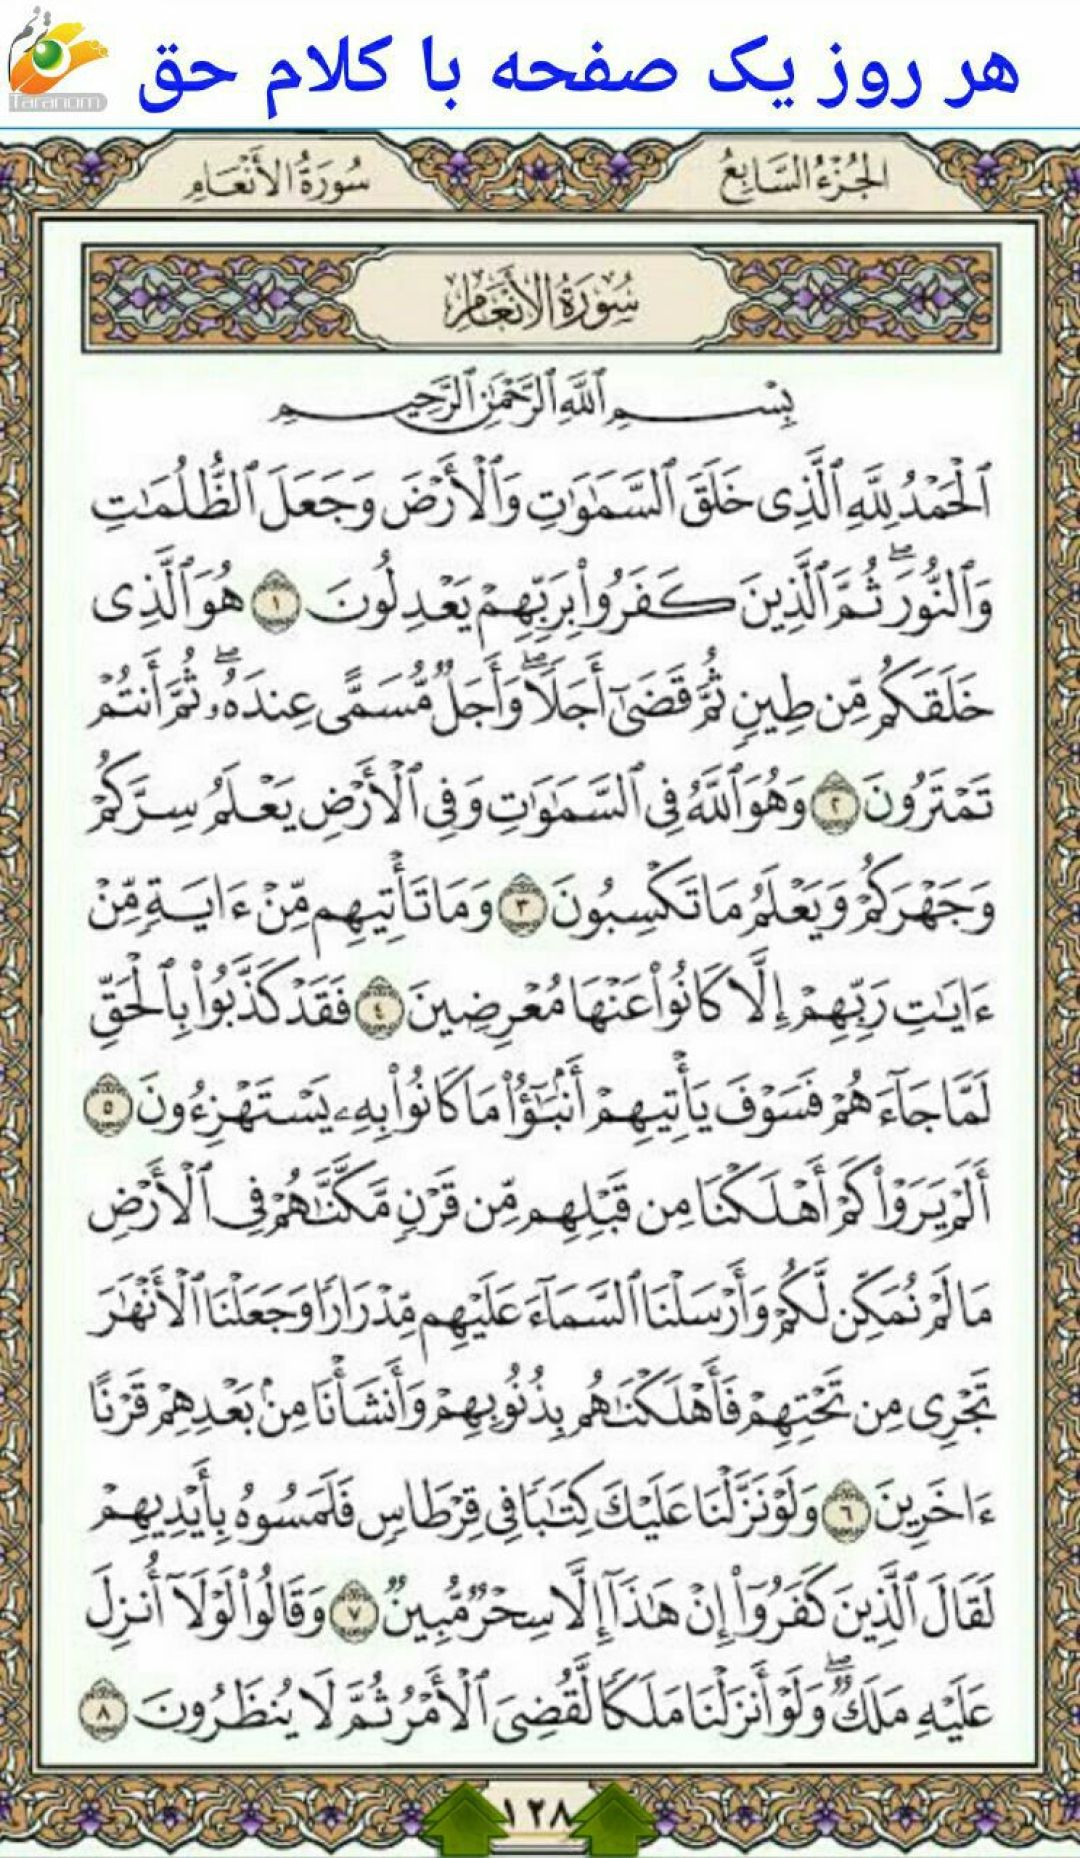 ترنم
Taranom
هر روز یک صفحه با کلام حق
الجُزْءُ السَّابِعُ
سُورَةُ الأَنْعَامِ
سُورَةُ الأَنْعَامِ
بِسْمِ ٱللَّهِ ٱلرَّحْمَٰنِ ٱلرَّحِيمِ
ٱلْحَمْدُ لِلَّهِ ٱلَّذِى خَلَقَ ٱلسَّمَٰوَٰتِ وَٱلْأَرْضَ وَجَعَلَ ٱلظُّلُمَٰتِ
وَٱلنُّورَ ۖ ثُمَّ ٱلَّذِينَ كَفَرُوا۟ بِرَبِّهِمْ يَعْدِلُونَ ١ هُوَ ٱلَّذِى
خَلَقَكُم مِّن طِينٍ ثُمَّ قَضَىٰٓ أَجَلًا ۖ وَأَجَلٌ مُّسَمًّى عِندَهُۥ ۖ ثُمَّ أَنتُمْ
تَمْتَرُونَ ٢ وَهُوَ ٱللَّهُ فِى ٱلسَّمَٰوَٰتِ وَفِى ٱلْأَرْضِ يَعْلَمُ سِرَّكُمْ
وَجَهْرَكُمْ وَيَعْلَمُ مَا تَكْسِبُونَ ٣ وَمَا تَأْتِيهِم مِّنْ ءَايَةٍ مِّنْ
ءَايَٰتِ رَبِّهِمْ إِلَّا كَانُوا۟ عَنْهَا مُعْرِضِينَ ٤ فَقَدْ كَذَّبُوا۟ بِٱلْحَقِّ
لَمَّا جَآءَهُمْ فَسَوْفَ يَأْتِيهِمْ أَنۢبَٰٓؤُا۟ مَا كَانُوا۟ بِهِۦ يَسْتَهْزِءُونَ ٥
أَلَمْ يَرَوْا۟ كَمْ أَهْلَكْنَا مِن قَبْلِهِم مِّن قَرْنٍ مَّكَّنَّٰهُمْ فِى ٱلْأَرْضِ
مَا لَمْ نُمَكِّن لَّكُمْ وَأَرْسَلْنَا ٱلسَّمَآءَ عَلَيْهِم مِّدْرَارًا وَجَعَلْنَا ٱلْأَنْهَٰرَ
تَجْرِى مِن تَحْتِهِمْ فَأَهْلَكْنَٰهُم بِذُنُوبِهِمْ وَأَنشَأْنَا مِنۢ بَعْدِهِمْ قَرْنًا
ءَاخَرِينَ ٦ وَلَوْ نَزَّلْنَا عَلَيْكَ كِتَٰبًا فِى قِرْطَاسٍ فَلَمَسُوهُ بِأَيْدِيهِمْ
لَقَالَ ٱلَّذِينَ كَفَرُوٓا۟ إِنْ هَٰذَآ إِلَّا سِحْرٌ مُّبِينٌ ٧ وَقَالُوا۟ لَوْلَآ أُنزِلَ
عَلَيْهِ مَلَكٌ ۖ وَلَوْ أَنزَلْنَا مَلَكًا لَّقُضِىَ ٱلْأَمْرُ ثُمَّ لَا يُنظَرُونَ ٨
١٢٨